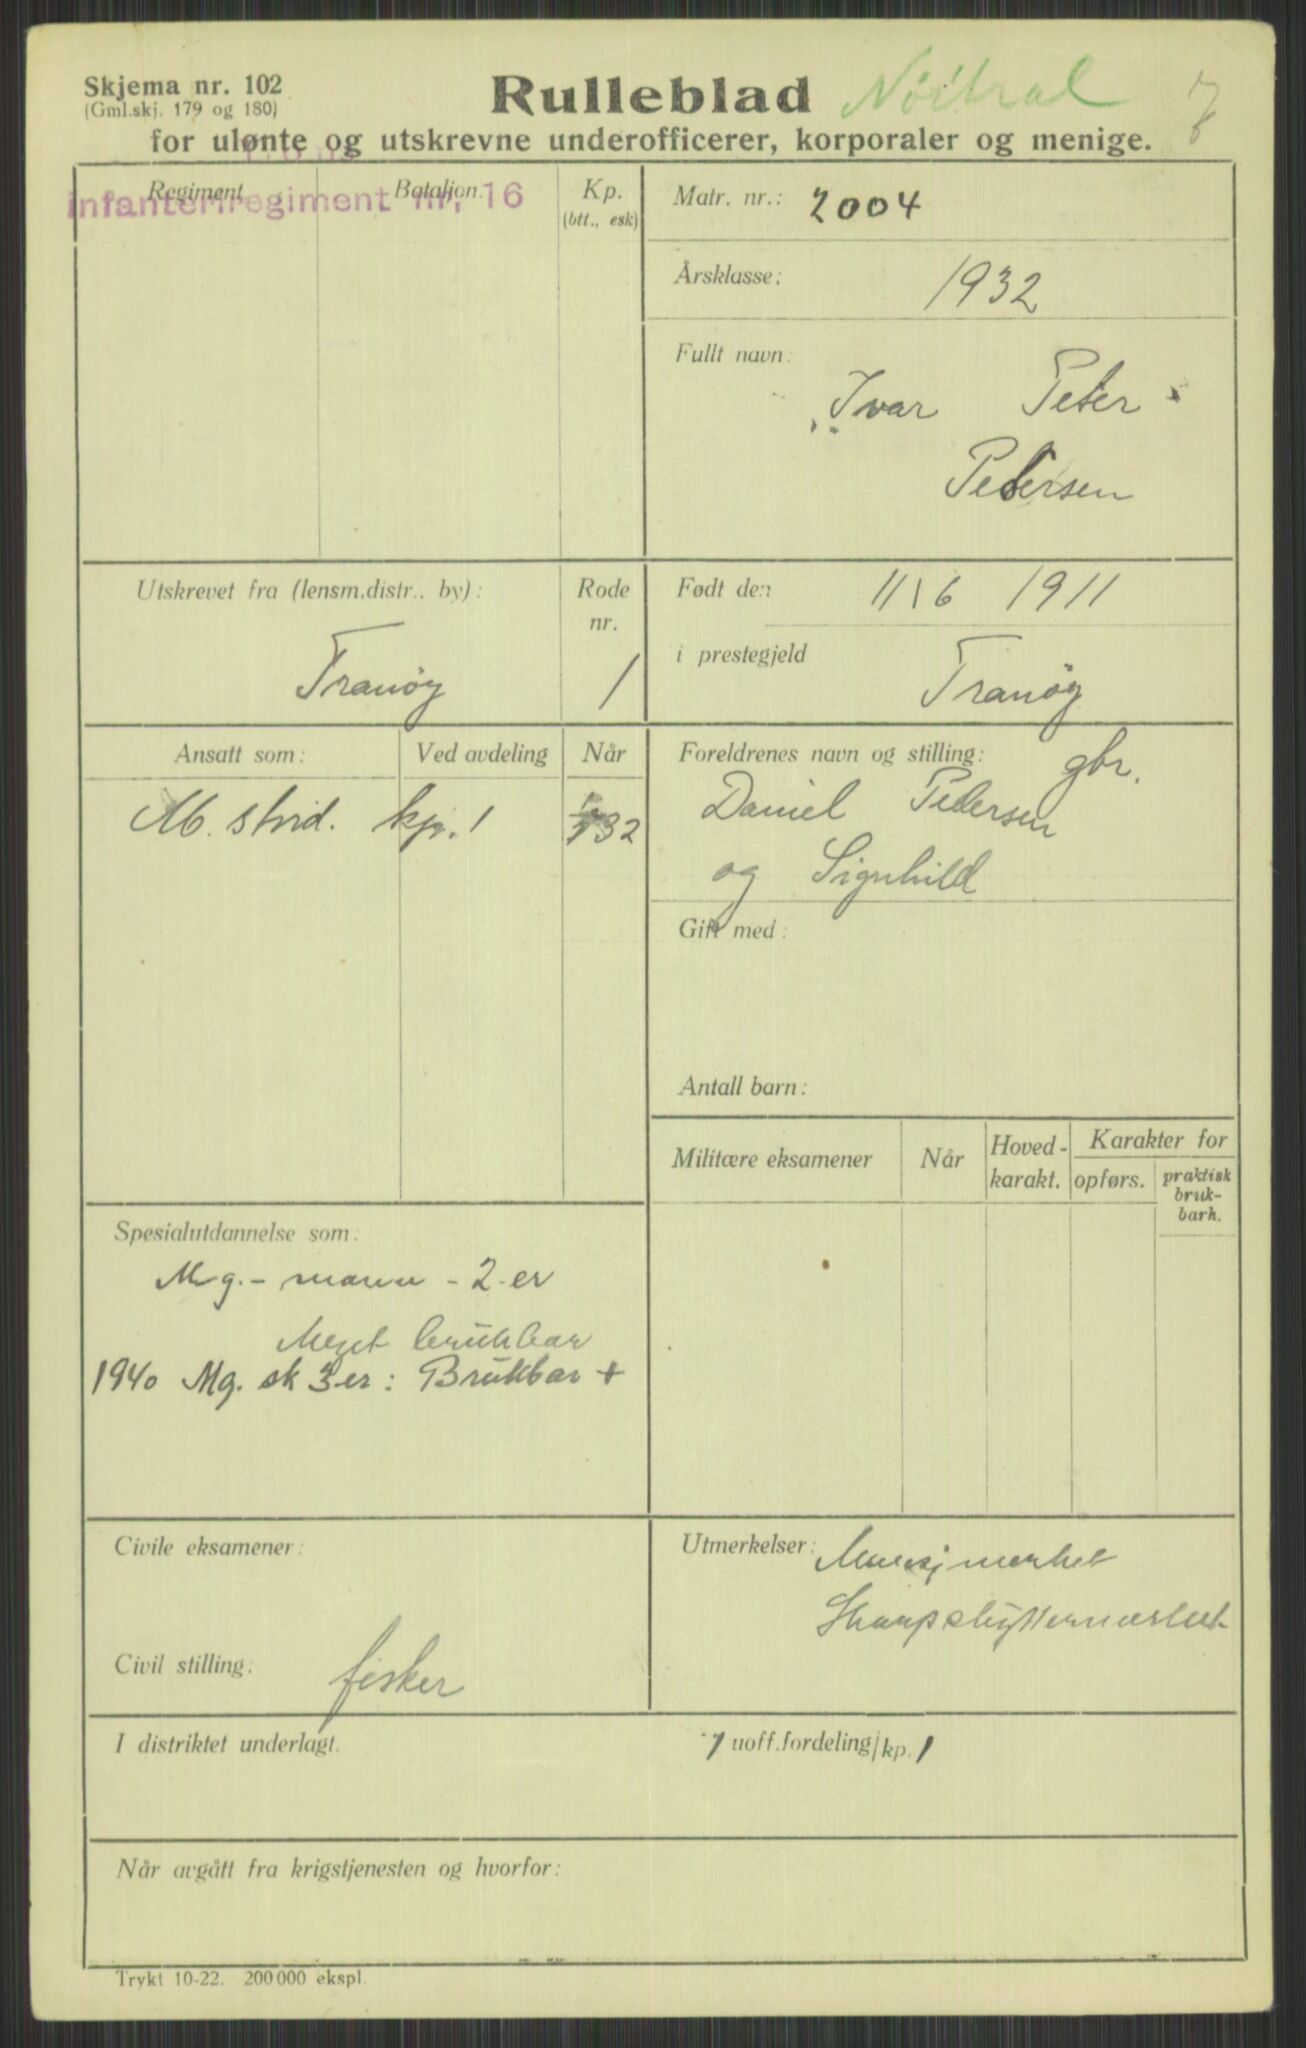 Skjema nr. 102
(Gml.skj. 179 og 180)
Rulleblad
Nöitral
for ulønte og utskrevne underofficerer, korporaler og menige.
Regiment.
Bataljon.
Kp.
(btt., esk)
infanteriregiment nr. 16
Matr. nr.: 2004
Årsklasse: 1932
Fullt navn:
Ivar Peter
Pedersen
Utskrevet fra (lensm.distr.. by):
Rode
nr.
Tranöy
1
Født den 11/6 1911
i prestegjeld
Tranöy
Ansatt som:
Ved avdeling
Når
kp. 1
32
Foreldrenes navn og stilling: gbr.
Daniel Pedersen
og Signhild
Gift med:
Antall barn:
Militære eksamener
Når
Hoved-
karakt.
Karakter for
opførs.
praktisk
bruk-
barh.
Spesialutdannelse som:
Mg.- mann - 2-er
Meget brukbar
1940 Mg. sk 3-er: Brukbar +
Civile eksamener:
Civil stilling: fisker
Utmerkelser:
Skarpskyttermerket
I distriktet underlagt.
1 uoff.fordeling/kp. 1
Når avgått fra krigstjenesten og hvorfor:
Trykt 10-22. 200 000 ekspl.